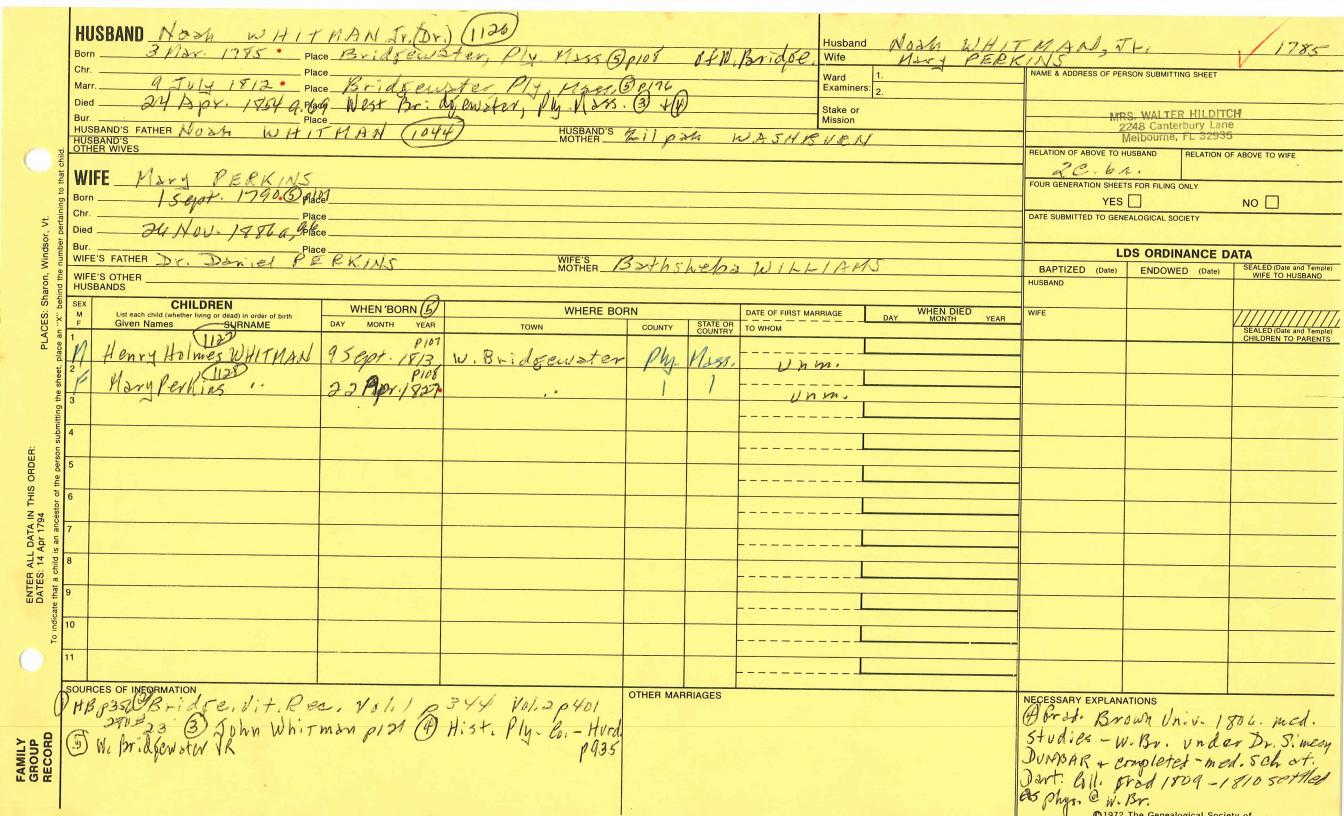 HUSBAND Noah WHITMAN Jr. (Dr.) 1126
Born 3 Mar. 1785 Place Bridgewater, Ply Mass ⑤ p108 of W. Bridge.
Chr. Place
Marr. 9 July 1812 Place Bridgewater Ply. Mass. ⑤ p176
Died 24 Apr. 1854 a. 69 Place West Bridgewater, Ply Mass. ③ + ④
Bur. Place
HUSBAND'S FATHER Noah WHITMAN 1044 HUSBAND'S MOTHER Zilpah WASHBURN
HUSBAND'S OTHER WIVES
Husband Noah WHITMAN, Jr. 1785
Wife Mary PERKINS
Ward Examiners: 1.
2.
Stake or Mission
NAME & ADDRESS OF PERSON SUBMITTING SHEET
MRS. WALTER HILDITCH
2248 Canterbury Lane
Melbourne, FL 32935
RELATION OF ABOVE TO HUSBAND RELATION OF ABOVE TO WIFE
FOUR GENERATION SHEETS FOR FILING ONLY
YES NO
DATE SUBMITTED TO GENEALOGICAL SOCIETY
WIFE Mary PERKINS
Born 1 Sept. 1790 ⑤ p107 Place
Chr. Place
Died Nov. Place
Bur. Place
WIFE'S FATHER Dr. Daniel PERKINS WIFE'S MOTHER Bathsheba WILLIAMS
WIFE'S OTHER HUSBANDS
LDS ORDINANCE DATA
BAPTIZED (Date) ENDOWED (Date) SEALED (Date and Temple) WIFE TO HUSBAND
HUSBAND
WIFE
SEALED (Date and Temple) CHILDREN TO PARENTS
SEX M F CHILDREN WHEN BORN ⑤ WHERE BORN DATE OF FIRST MARRIAGE WHEN DIED
List each child (whether living or dead) in order of birth
Given Names SURNAME DAY MONTH YEAR TOWN COUNTY STATE OR COUNTRY TO WHOM DAY MONTH YEAR
1 M Henry Holmes WHITMAN 1127 9 Sept. 1813 p107 W. Bridgewater Ply. Mass. unm.
2 F Mary Perkins " 1128 22 Apr. 1827 p108 " | | unm.
3
4
5
6
7
8
9
10
11
SOURCES OF INFORMATION
① HB p356 ② Bridge. Vit. Rec. Vol. 1 p 344 Vol. 2 p 401
23 ③ John Whitman p121 ④ Hist. Ply. Co. - Hurd p935
⑤ W. Bridgewater VR
OTHER MARRIAGES
NECESSARY EXPLANATIONS
④ Grad. Brown Univ. 1806. med.
studies - W. Br. under Dr. Simeon
DUNBAR + completed - med. Sch at.
Dart. Coll. Grad 1809 - 1810 settled
as phys. @ W. Br.
©1972 The Genealogical Society of
PLACES: Sharon, Windsor, Vt.
ENTER ALL DATA IN THIS ORDER:
DATES: 14 Apr 1794
To indicate that a child is an ancestor of the person submitting the sheet, place an "X" behind the number pertaining to that child.
FAMILY GROUP RECORD